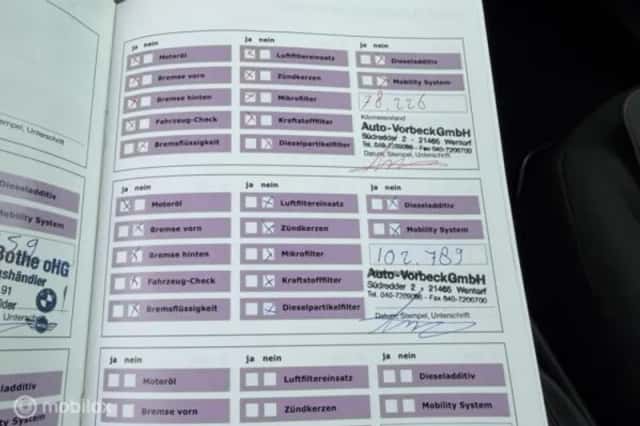 ja nein
ja nein
ja nein
Motoröl
Luftfiltereinsatz
Dieseladditiv
Bremse vorn
Zündkerzen
Mobility System
Bremse hinten
Mikrofilter
78.226
Kilometerstand
Fahrzeug-Check
Kraftstofffilter
Auto-Vorbeck GmbH
Südredder 2 - 21465 Wentorf
Tel. 040-7209086 - Fax 040-7206700
Datum, Stempel, Unterschrift
Bremsflüssigkeit
Dieselpartikelfilter
Stempel, Unterschrift
ja nein
ja nein
ja nein
Motoröl
Luftfiltereinsatz
Dieseladditiv
Bremse vorn
Zündkerzen
Mobility System
Bremse hinten
Mikrofilter
102.789
Fahrzeug-Check
Kraftstofffilter
Auto-Vorbeck GmbH
Südredder 2 - 21465 Wentorf
Tel. 040-7209086 - Fax 040-7206700
Datum, Stempel, Unterschrift
Bremsflüssigkeit
Dieselpartikelfilter
Dieseladditiv
Mobility System
59
Bothe oHG
gshändler
91
Unterschrift
ja nein
ja nein
ja nein
Motoröl
Luftfiltereinsatz
Dieseladditiv
Bremse vorn
Zündkerzen
Mobility System
laditiv
System
mobilox